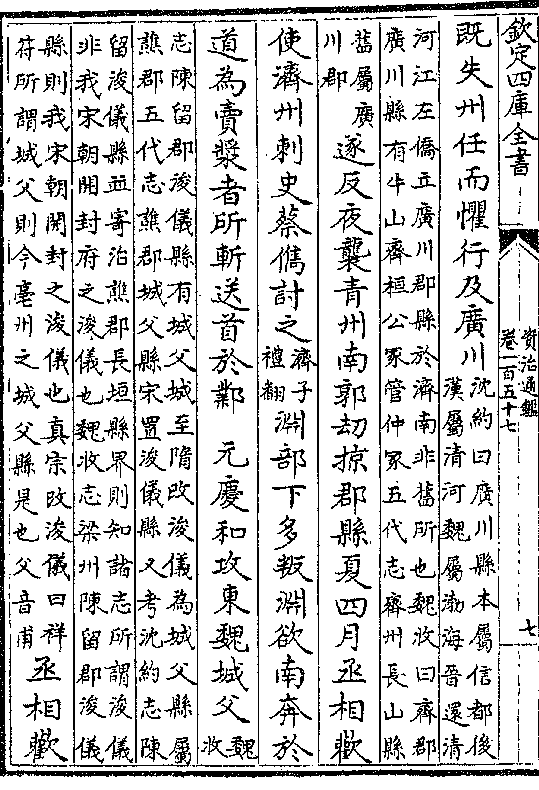 欽定四庫全書
資治通鑑
卷一百五十七
七
既失州任而懼行及廣川沈約曰廣川縣本屬信都後
漢屬清河魏屬渤海晉還清
河江左僑立廣川郡縣於濟南非舊所也魏收曰齊郡
廣川縣有牛山齊桓公冢管仲冢五代志齊州長山縣
舊屬廣
川郡遂反夜襲青州南郭劫掠郡縣夏四月丞相歡
使濟州刺史蔡儁討之濟子
禮翻淵部下多叛淵欲南奔於
道為賣漿者所斬送首於鄴 元慶和攻東魏城父魏
收
志陳留郡浚儀縣有城父城至隋改浚儀為城父縣屬
譙郡五代志譙郡城父縣宋置浚儀縣又考沈約志陳
留浚儀縣並寄治譙郡長垣縣界則知諸志所謂浚儀
非我宋朝開封府之浚儀也魏收志梁州陳留郡浚儀
縣則我宋朝開封之浚儀也真宗改浚儀曰祥
符所謂城父則今亳州之城父縣是也父音甫丞相歡